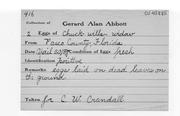 916
Collection of Gerard Alan Abbott
2 Eggs of Chuck wills widow
From Pasco County, Florida
Date April Condition of Eggs fresh
Identification positive
Remarks eggs laid on dead leaves on
the ground
Taken for C. W. Crandall